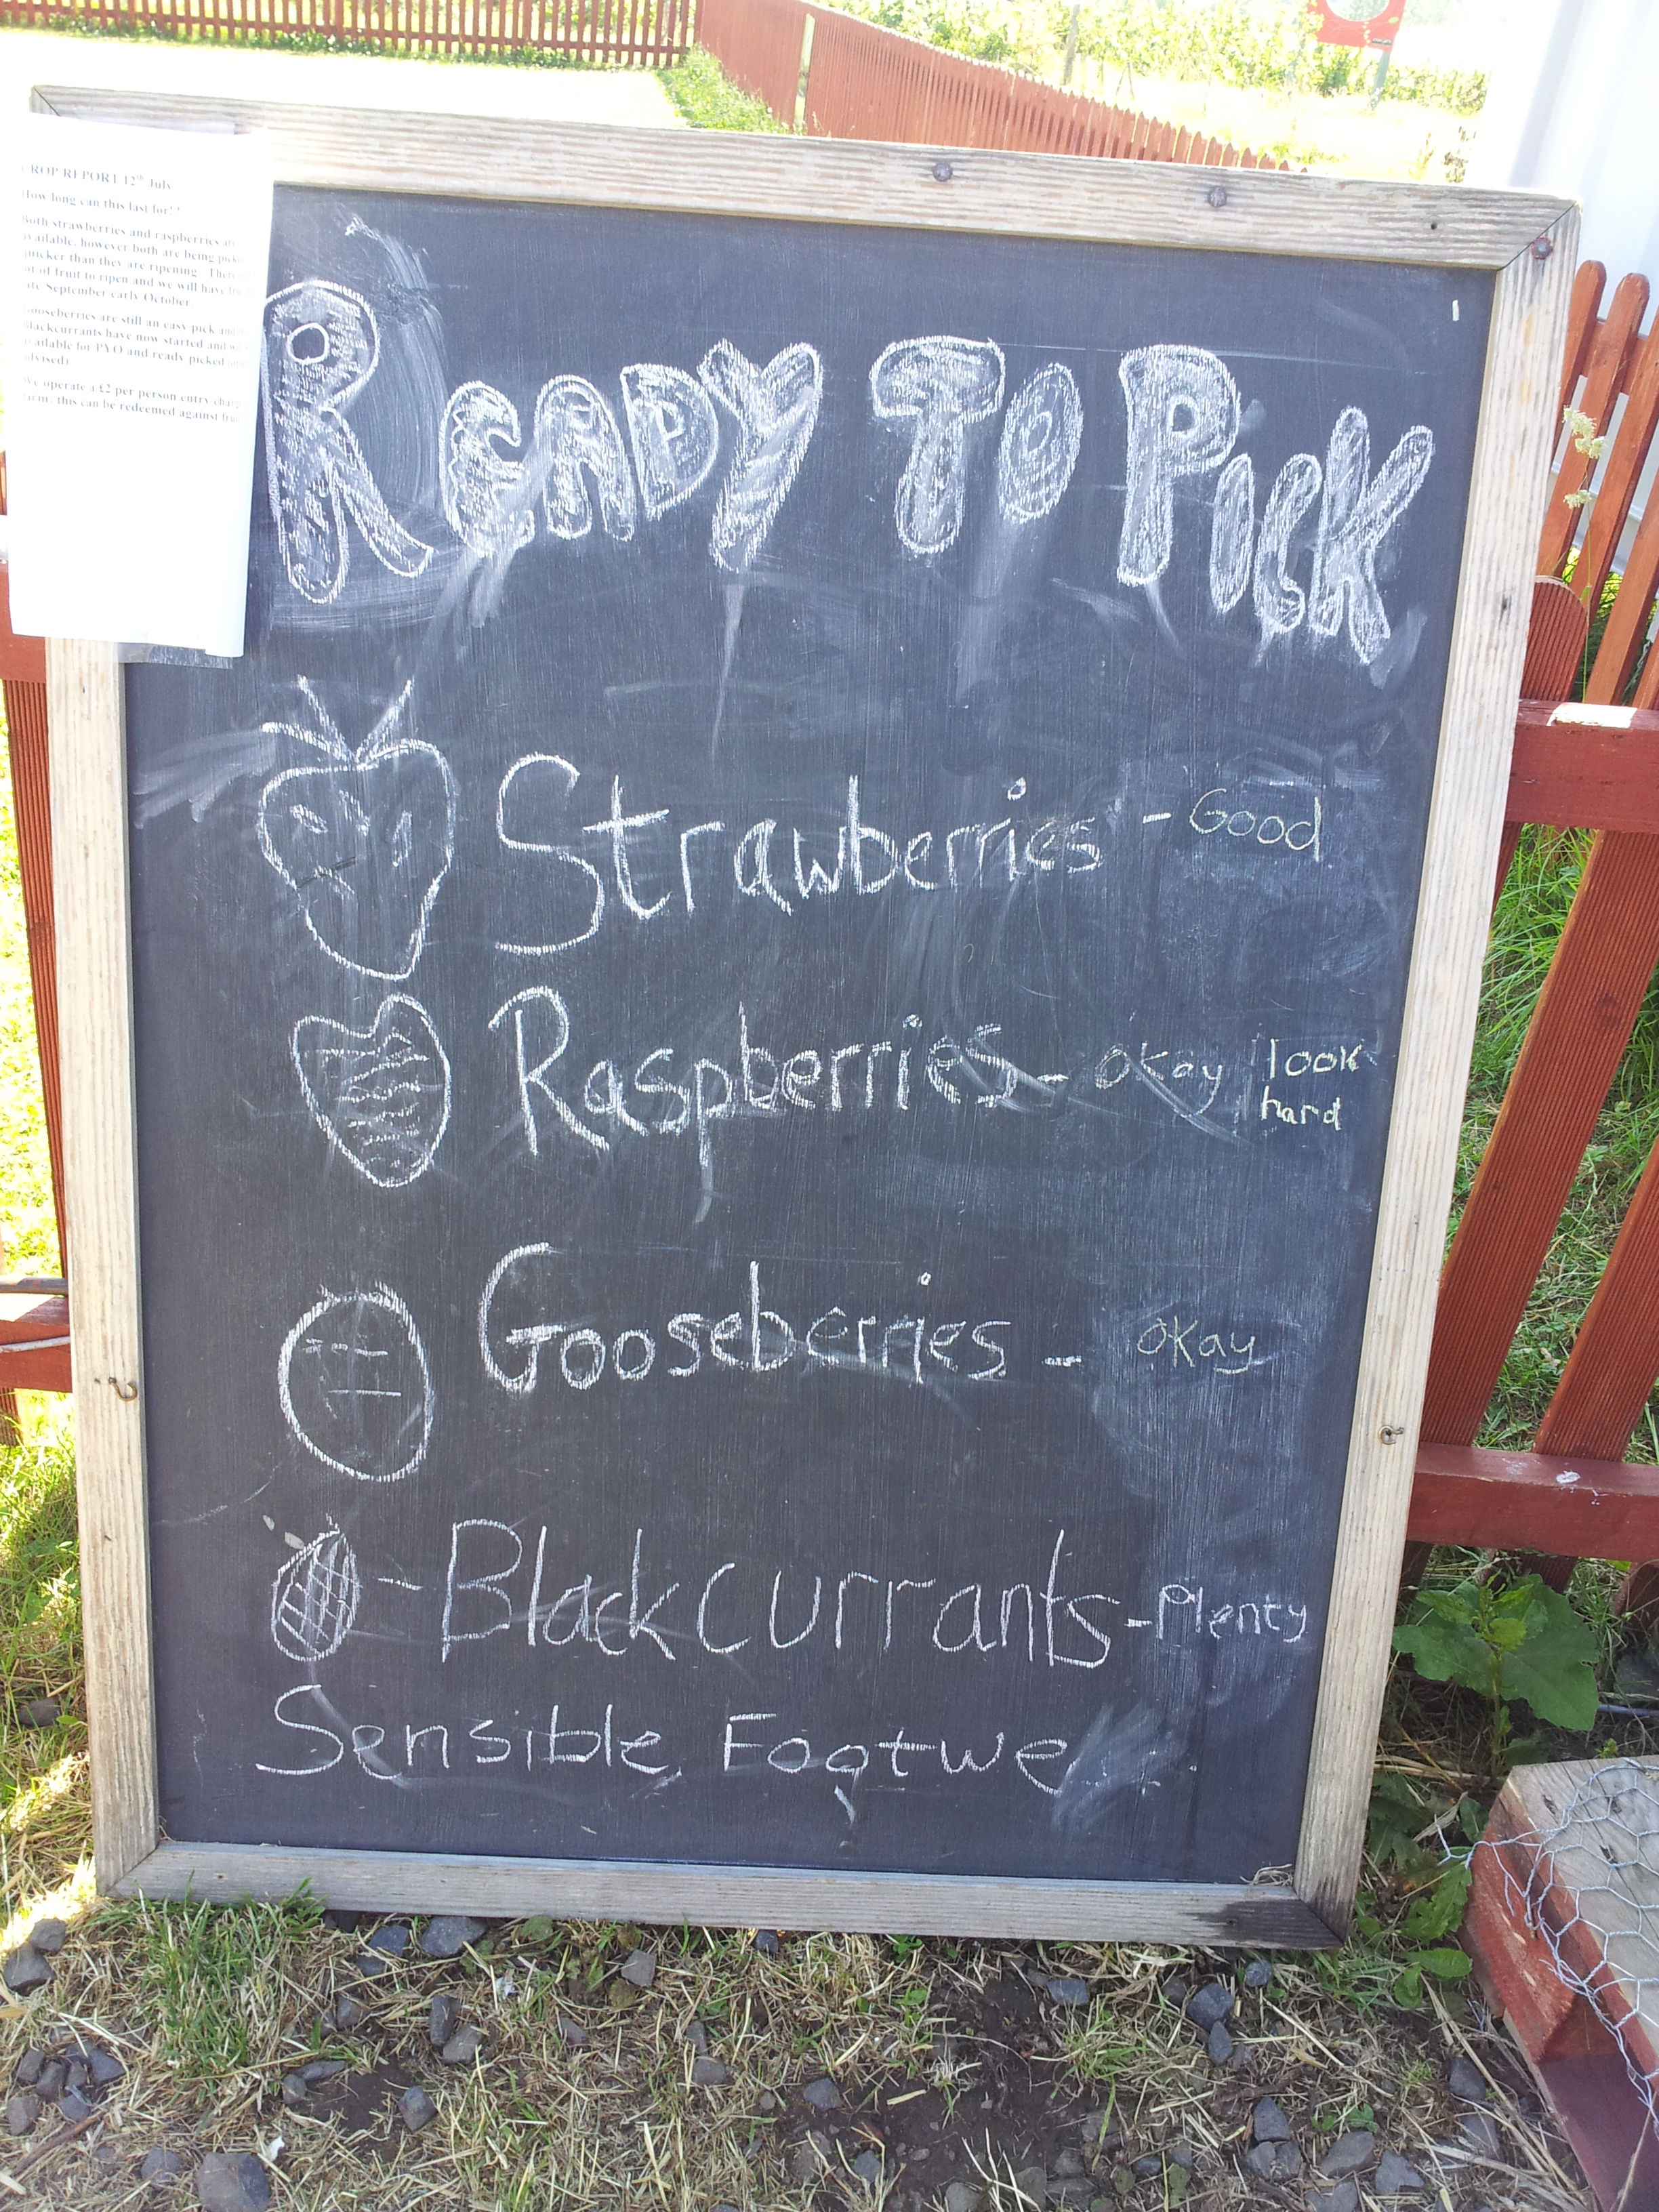 CROP REPORT 12th July
How long can this last for??
Both strawberries and raspberries are
available, however both are being
quicker than they are ripening. There
of fruit to ripen and we will have
September early October
Gooseberries are still an easy pick and
Blackcurrants have now started and
available for PYO and ready picked
advised)
We operate a £2 per person entry charge
farm, this can be redeemed against
READY TO PICK
Strawberries - Good
Raspberries - okay look
hard
Gooseberries - okay
- Blackcurrants - Plenty
Sensible Footwe